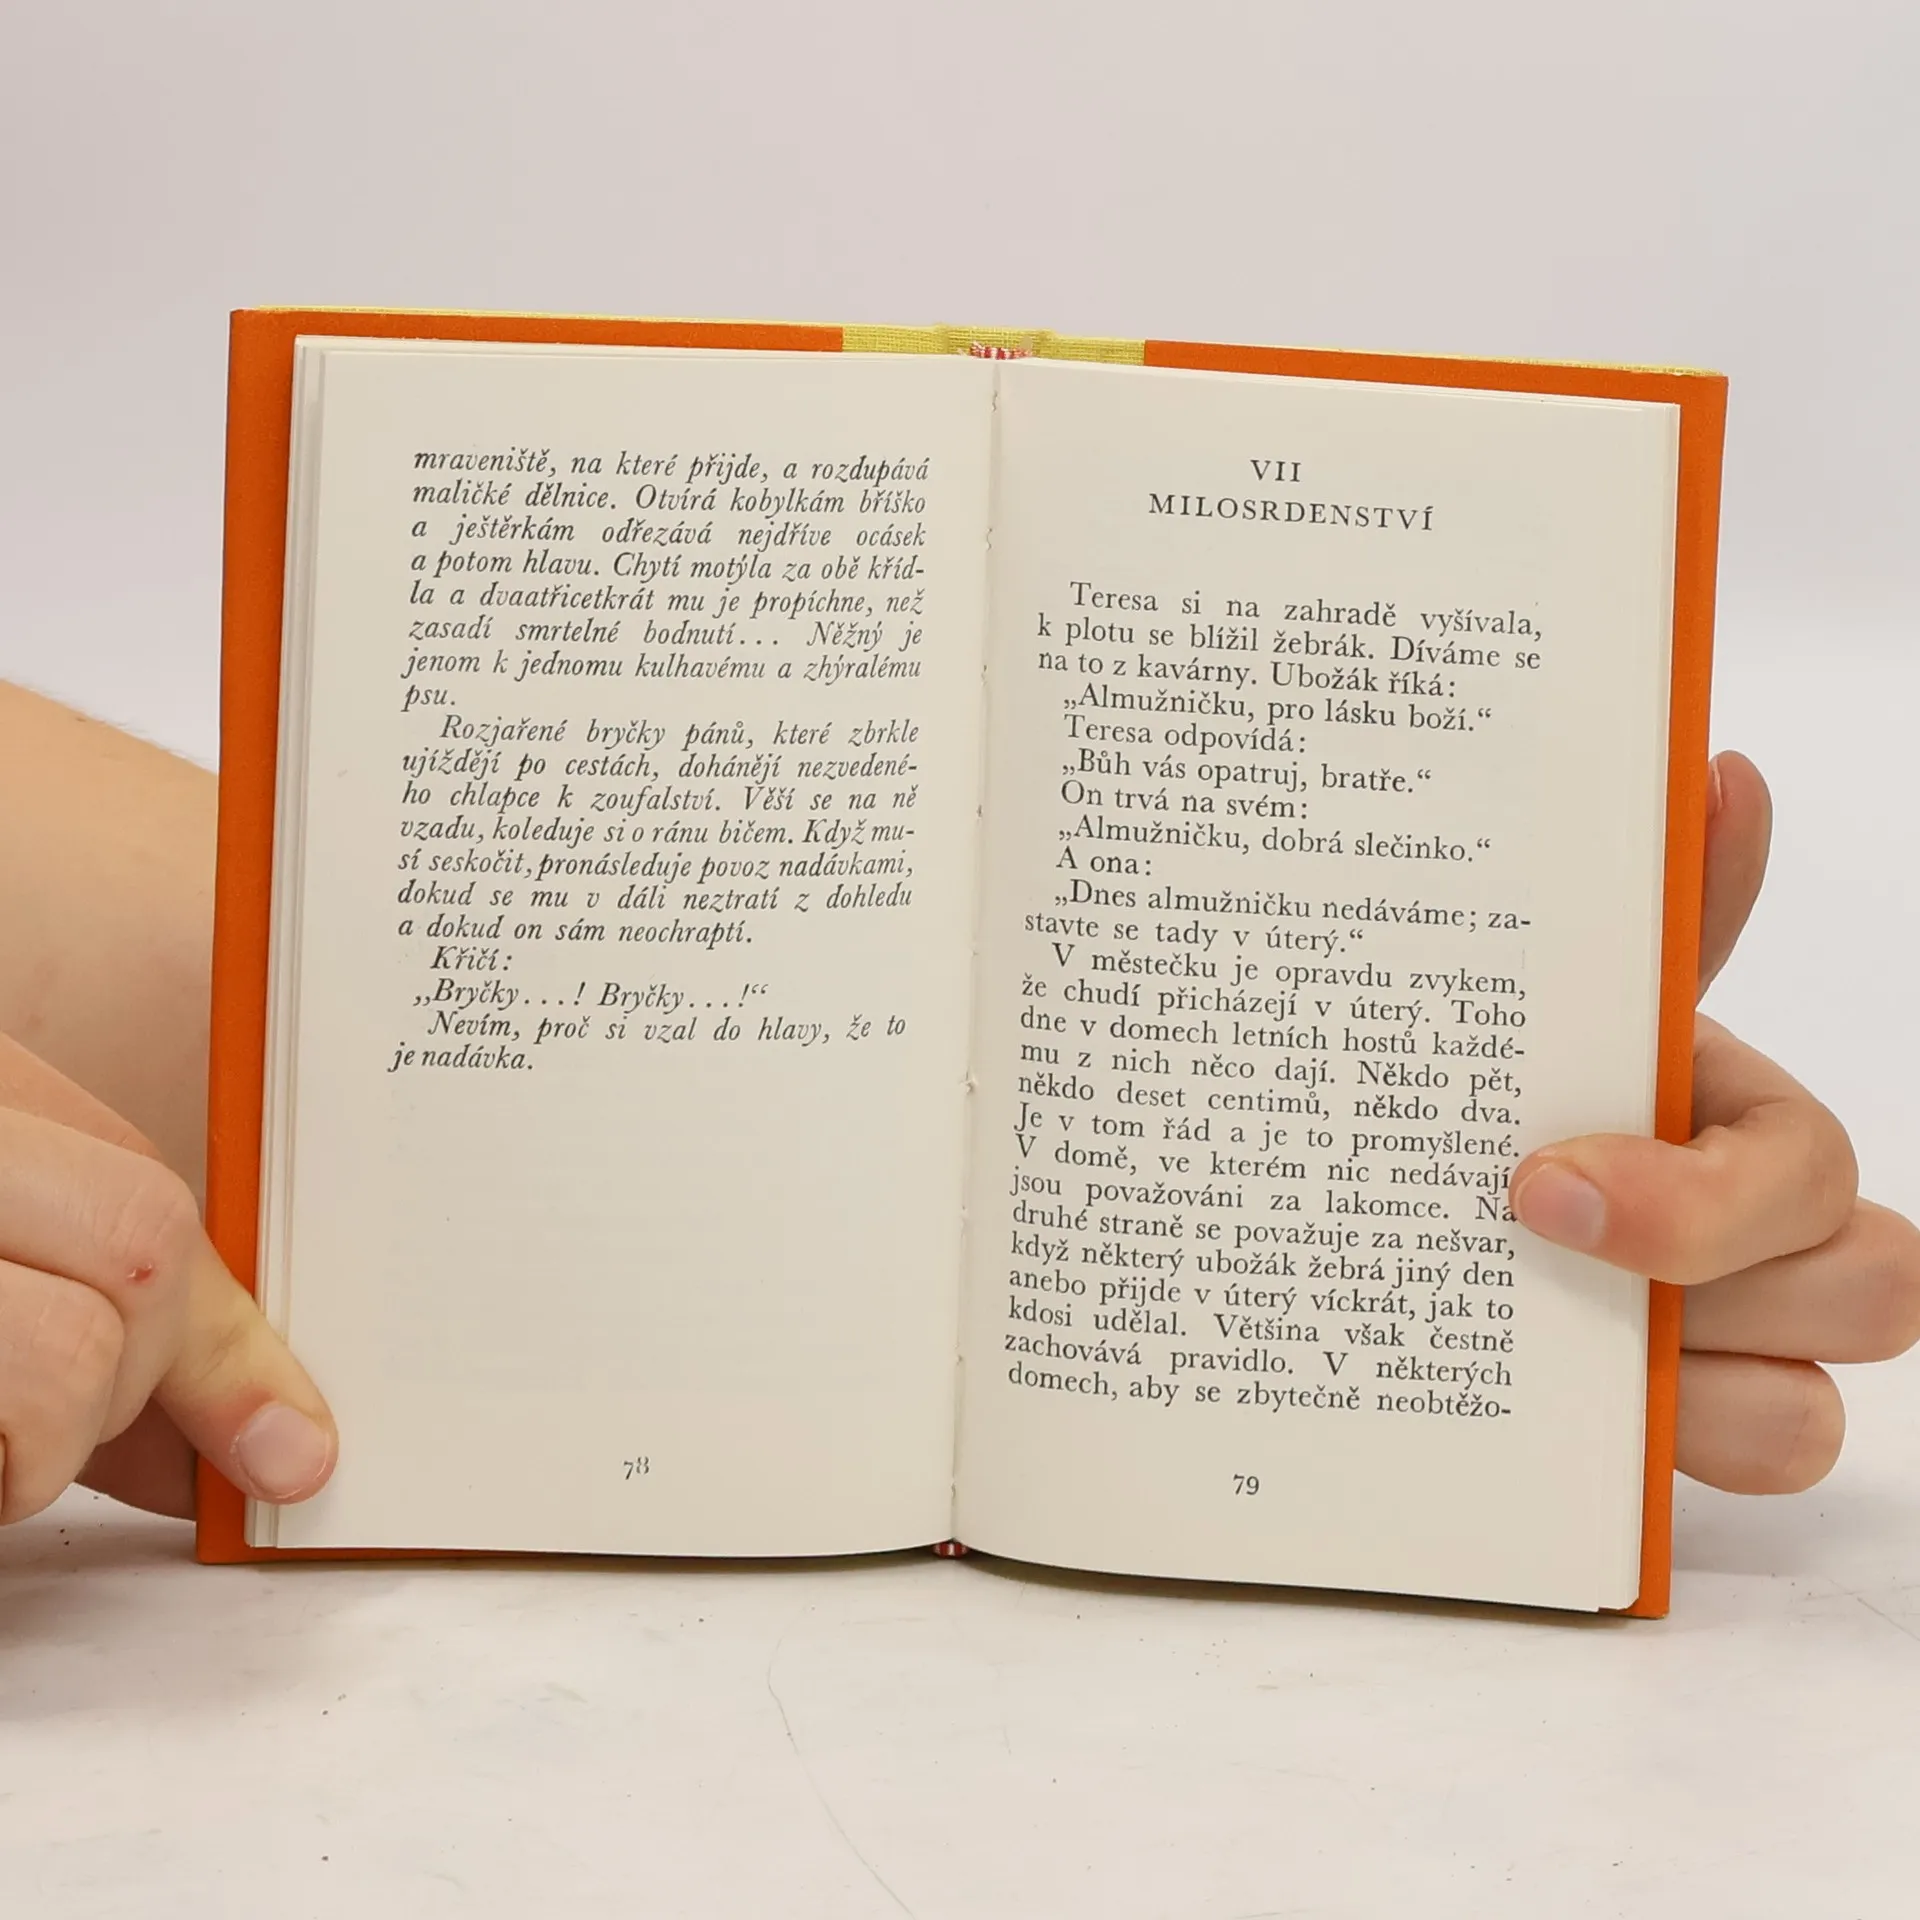 mraveniště, na které přijde, a rozdupává
maličké dělnice. Otvírá kobylkám bříško
a ještěrkám odřezává nejdříve ocásek
a potom hlavu. Chytí motýla za obě kříd-
la a dvaatřicetkrát mu je propíchne, než
zasadí smrtelné bodnutí... Něžný je
jenom k jednomu kulhavému a zhýralému
psu.
Rozjařené bryčky pánů, které zbrkle
ujíždějí po cestách, dohánějí nezvedené-
ho chlapce k zoufalství. Věší se na ně
vzadu, koleduje si o ránu bičem. Když mu-
sí seskočit, pronásleduje povoz nadávkami,
dokud se mu v dáli neztratí z dohledu
a dokud on sám neochraptí.
Křičí:
„Bryčky...! Bryčky...!“
Nevím, proč si vzal do hlavy, že to
je nadávka.
78
VII
MILOSRDENSTVÍ
Teresa si na zahradě vyšívala,
k plotu se blížil žebrák. Díváme se
na to z kavárny. Ubožák říká:
„Almužničku, pro lásku boží.“
Teresa odpovídá:
„Bůh vás opatruj, bratře.“
On trvá na svém:
„Almužničku, dobrá slečinko.“
A ona:
„Dnes almužničku nedáváme; za-
stavte se tady v úterý.“
V městečku je opravdu zvykem,
že chudí přicházejí v úterý. Toho
dne v domech letních hostů každé-
mu z nich něco dají. Někdo pět,
někdo deset centimů, někdo dva.
Je v tom řád a je to promyšlené.
V domě, ve kterém nic nedávají
jsou považováni za lakomce. Na
druhé straně se považuje za nešvar,
když některý ubožák žebrá jiný den
anebo přijde v úterý víckrát, jak to
kdosi udělal. Většina však čestně
zachovává pravidlo. V některých
domech, aby se zbytečně neobtěžo-
79